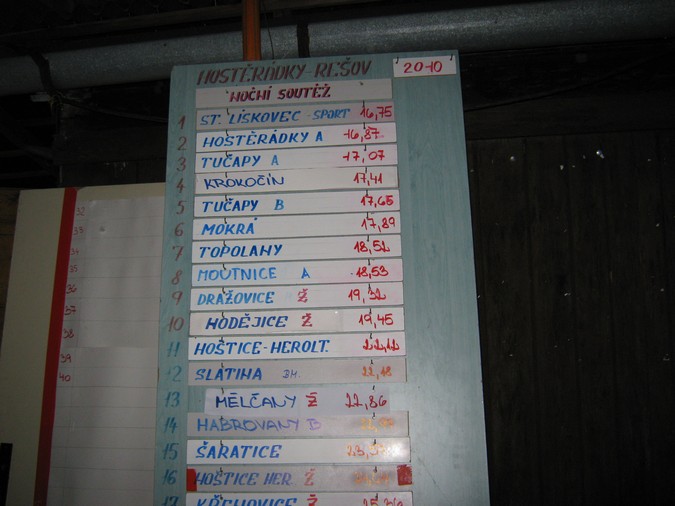 HOSTĚRÁDKY-REŠOV 2010
NOČNÍ SOUTĚŽ
1 ST. LÍSKOVEC - SPORT 16,75
2 HOSTĚRÁDKY A 16,87
3 TUČAPY A 17,07
4 KROKOČÍN 17,41
5 TUČAPY B 17,65
6 MOKRÁ 17,89
7 TOPOLANY 18,52
8 MOUTNICE A 18,53
9 DRAŽOVICE Ž 19,32
10 HODĚJICE Ž 19,45
11 HOŠTICE-HEROLT. 22,12
12 SLATINA BH. 22,18
13 MĚLČANY Ž 22,86
14 HABROVANY B
15 ŠARATICE
16 HOŠTICE HER. Ž
17 KŘENOVICE Ž
32
33
34
35
36
37
38
39
40